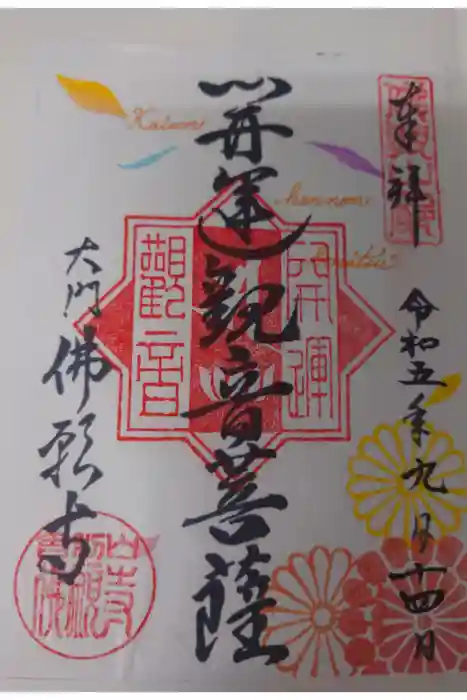 奉拝
令和五年九月十四日
開運観音菩薩
開運
観音
大門
佛願寺
Kaiun
kannon
bosatsu